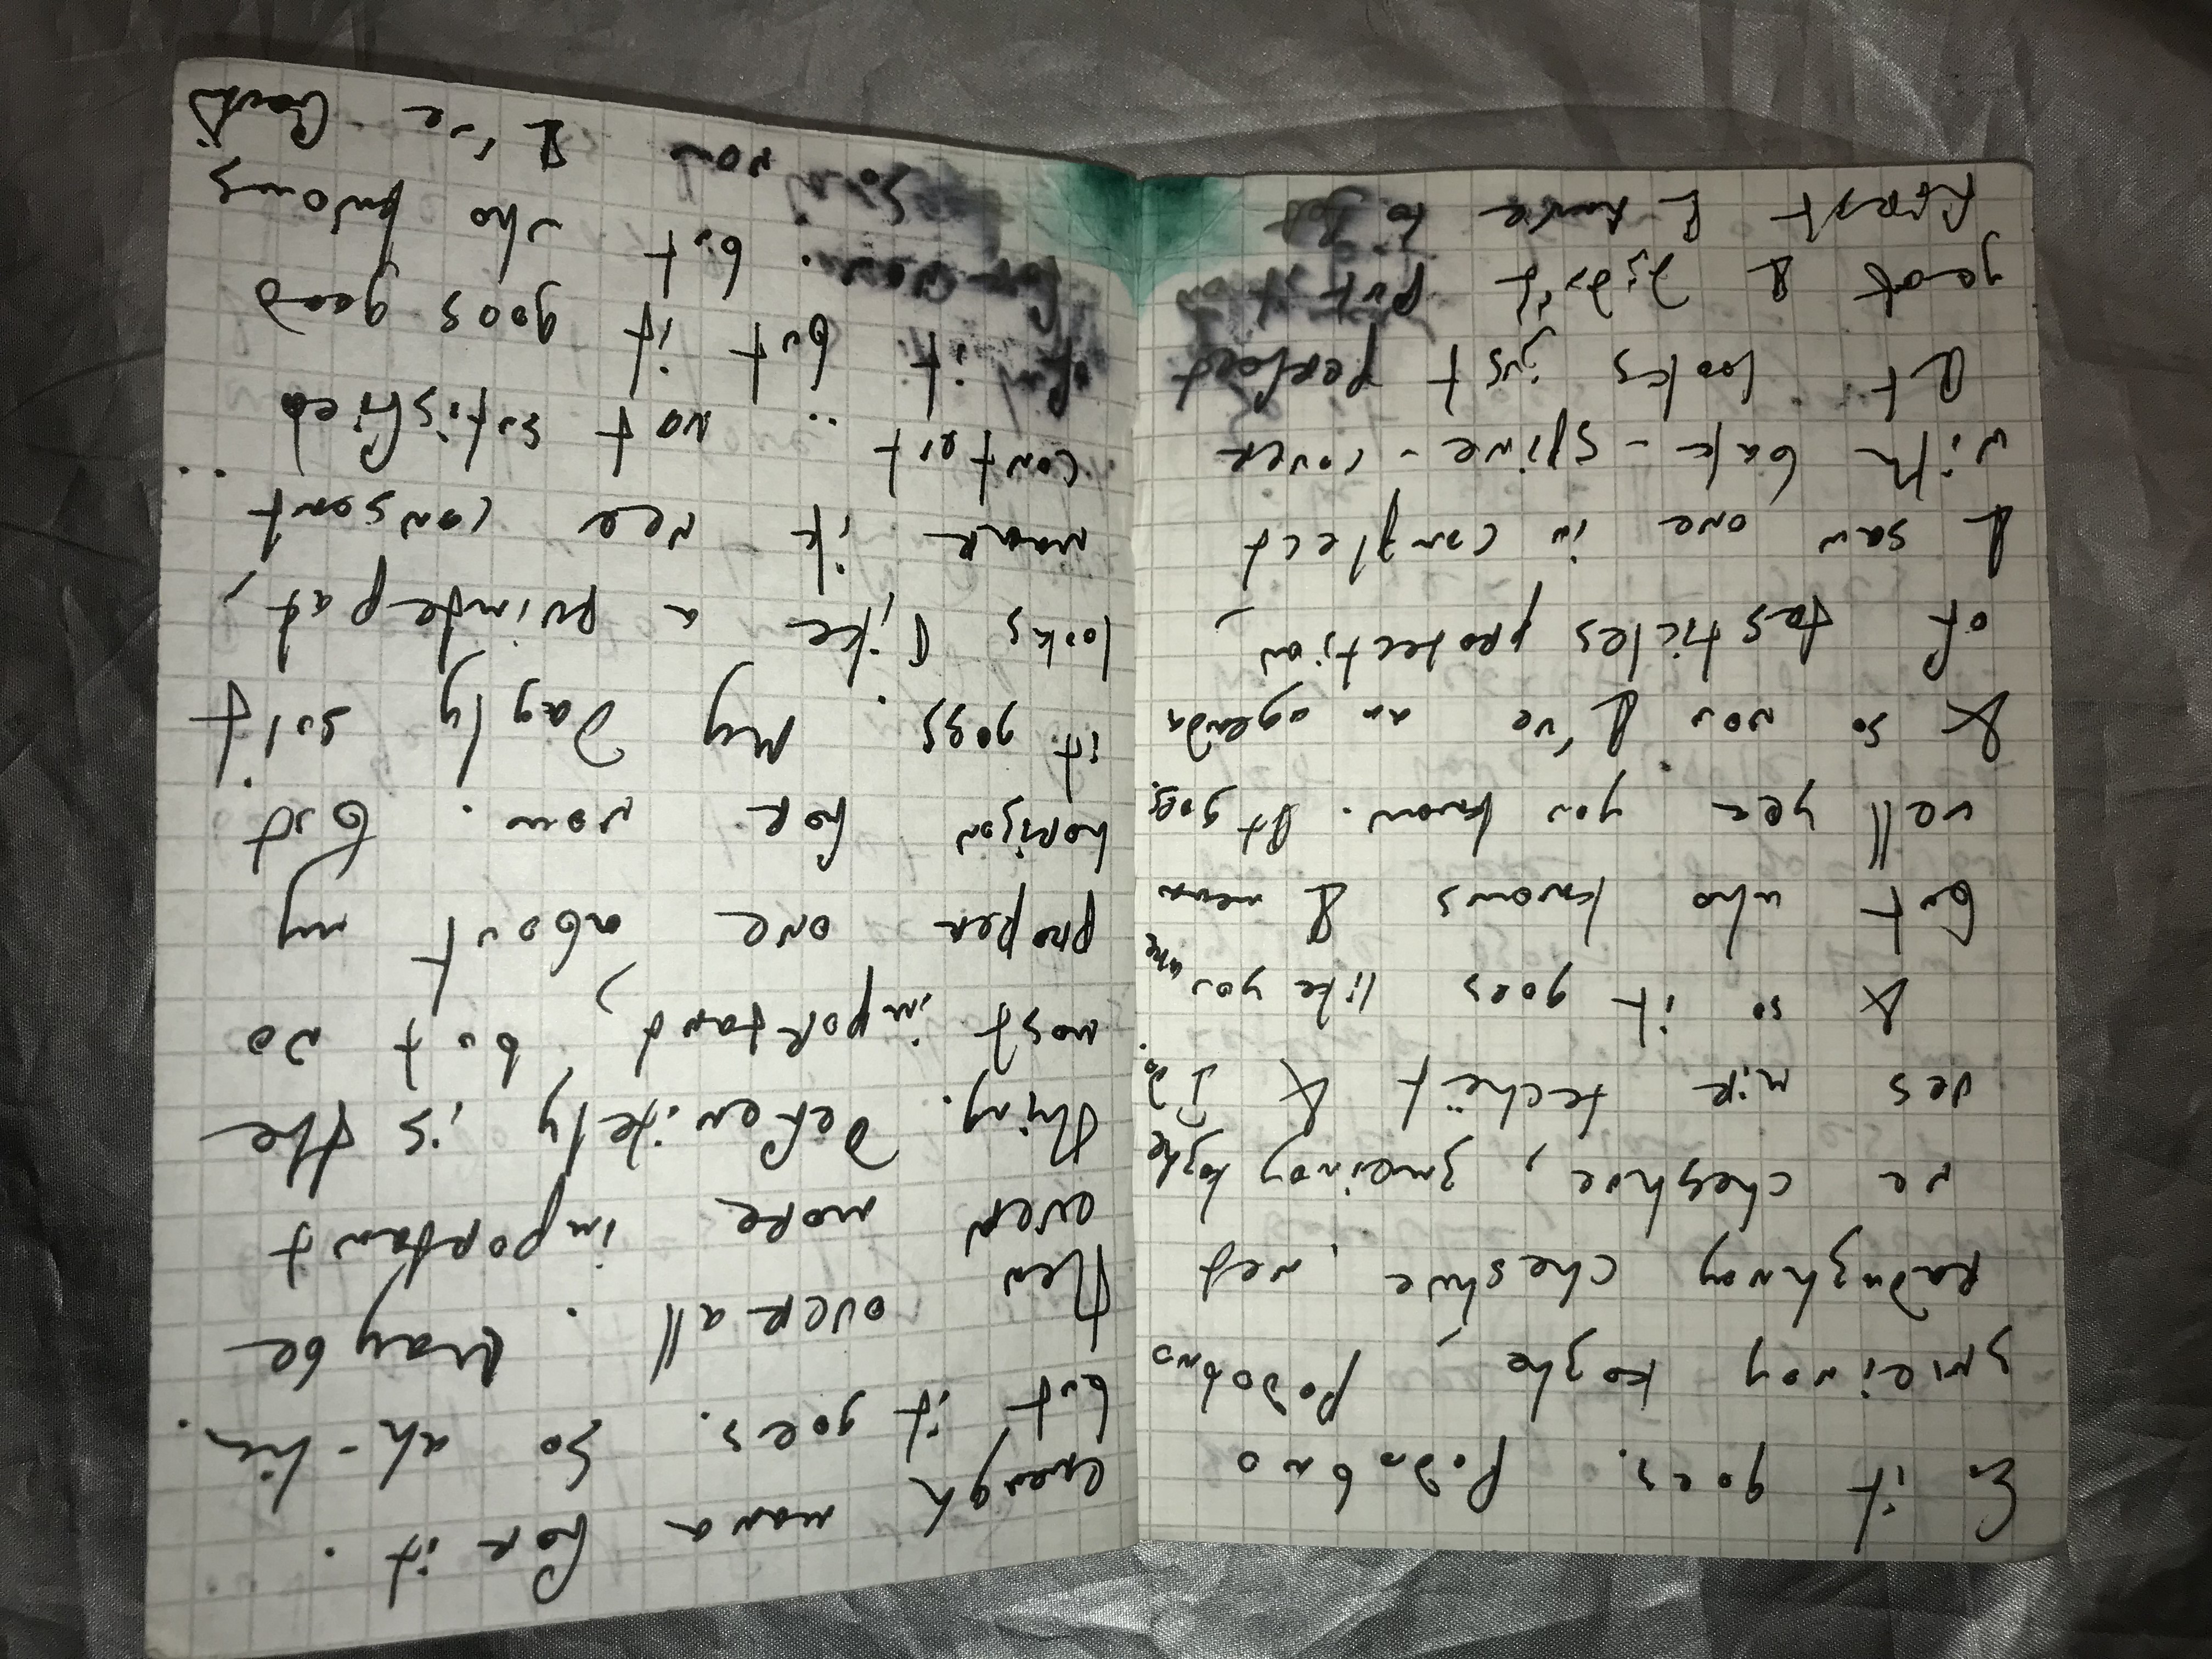 So it goes. Podobno
zmeinoy kozhe, Podobno
Raduzhnoy cheshue, net
ne cheshue, zmeinoy kozhe
ves mir techёt & I do.
& so it goes like you are
but who knows & mean
vell yea you know. It goes.
& so now I've an agenda
of testicles protection,
I saw one in complect
with bak-spine-cover
It looks just perfect
yeat I didn't put it on
first I have to Got
enough mana for it.
but it goes. So ah-
then overall. Maybe
even more important
thing. Defenitely is the
most important, but no
proper one about my
horizon for now. but
it goes. My dayly suit
looks like a
maar ik nee consent..
contert.. not sutisfied
of it but it goes good
for now. but who knows
So now I've